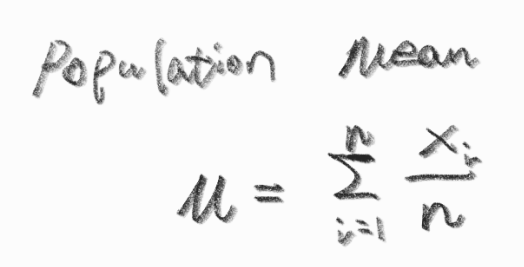 Population Mean
μ = ∑_{i=1}^{n} x_i / n